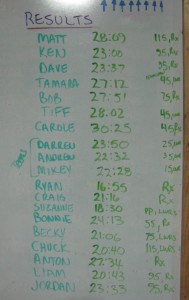 RESULTS
MATT 28:03 115, Rx
KEN 23:00 95, Rx
DAVE 23:37 95, Rx
TAMARA 27:12 45,
BOB 27:51 75, Rx
TIFF 28:02 45,
CAROLE 30:25 45,
Teens
DARREN 23:50 25
ANDREW 22:32 35
MIKEY 22:28 15
RYAN 16:55 Rx
CRAIG 21:16 Rx
SUZANNE 18:30 PP,
BONNIE 24:13 55, Rx
BECKY 21:06 75,
CHUCK 20:40 115,
ANTON 22:34 Rx
LIAM 20:43 95, Rx
JORDAN 23:23 95, Rx